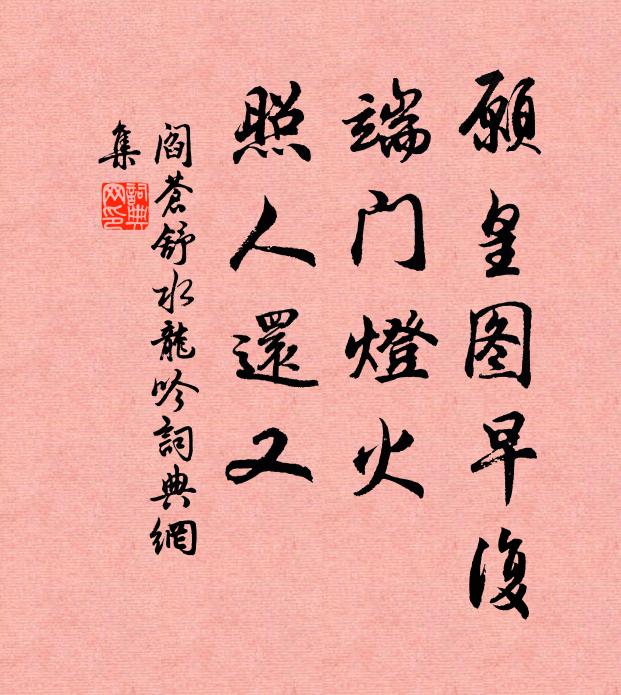 願皇图早復
端门燈火
照人還又
閻蒼舒水龍吟詞典網
集
詞典网印